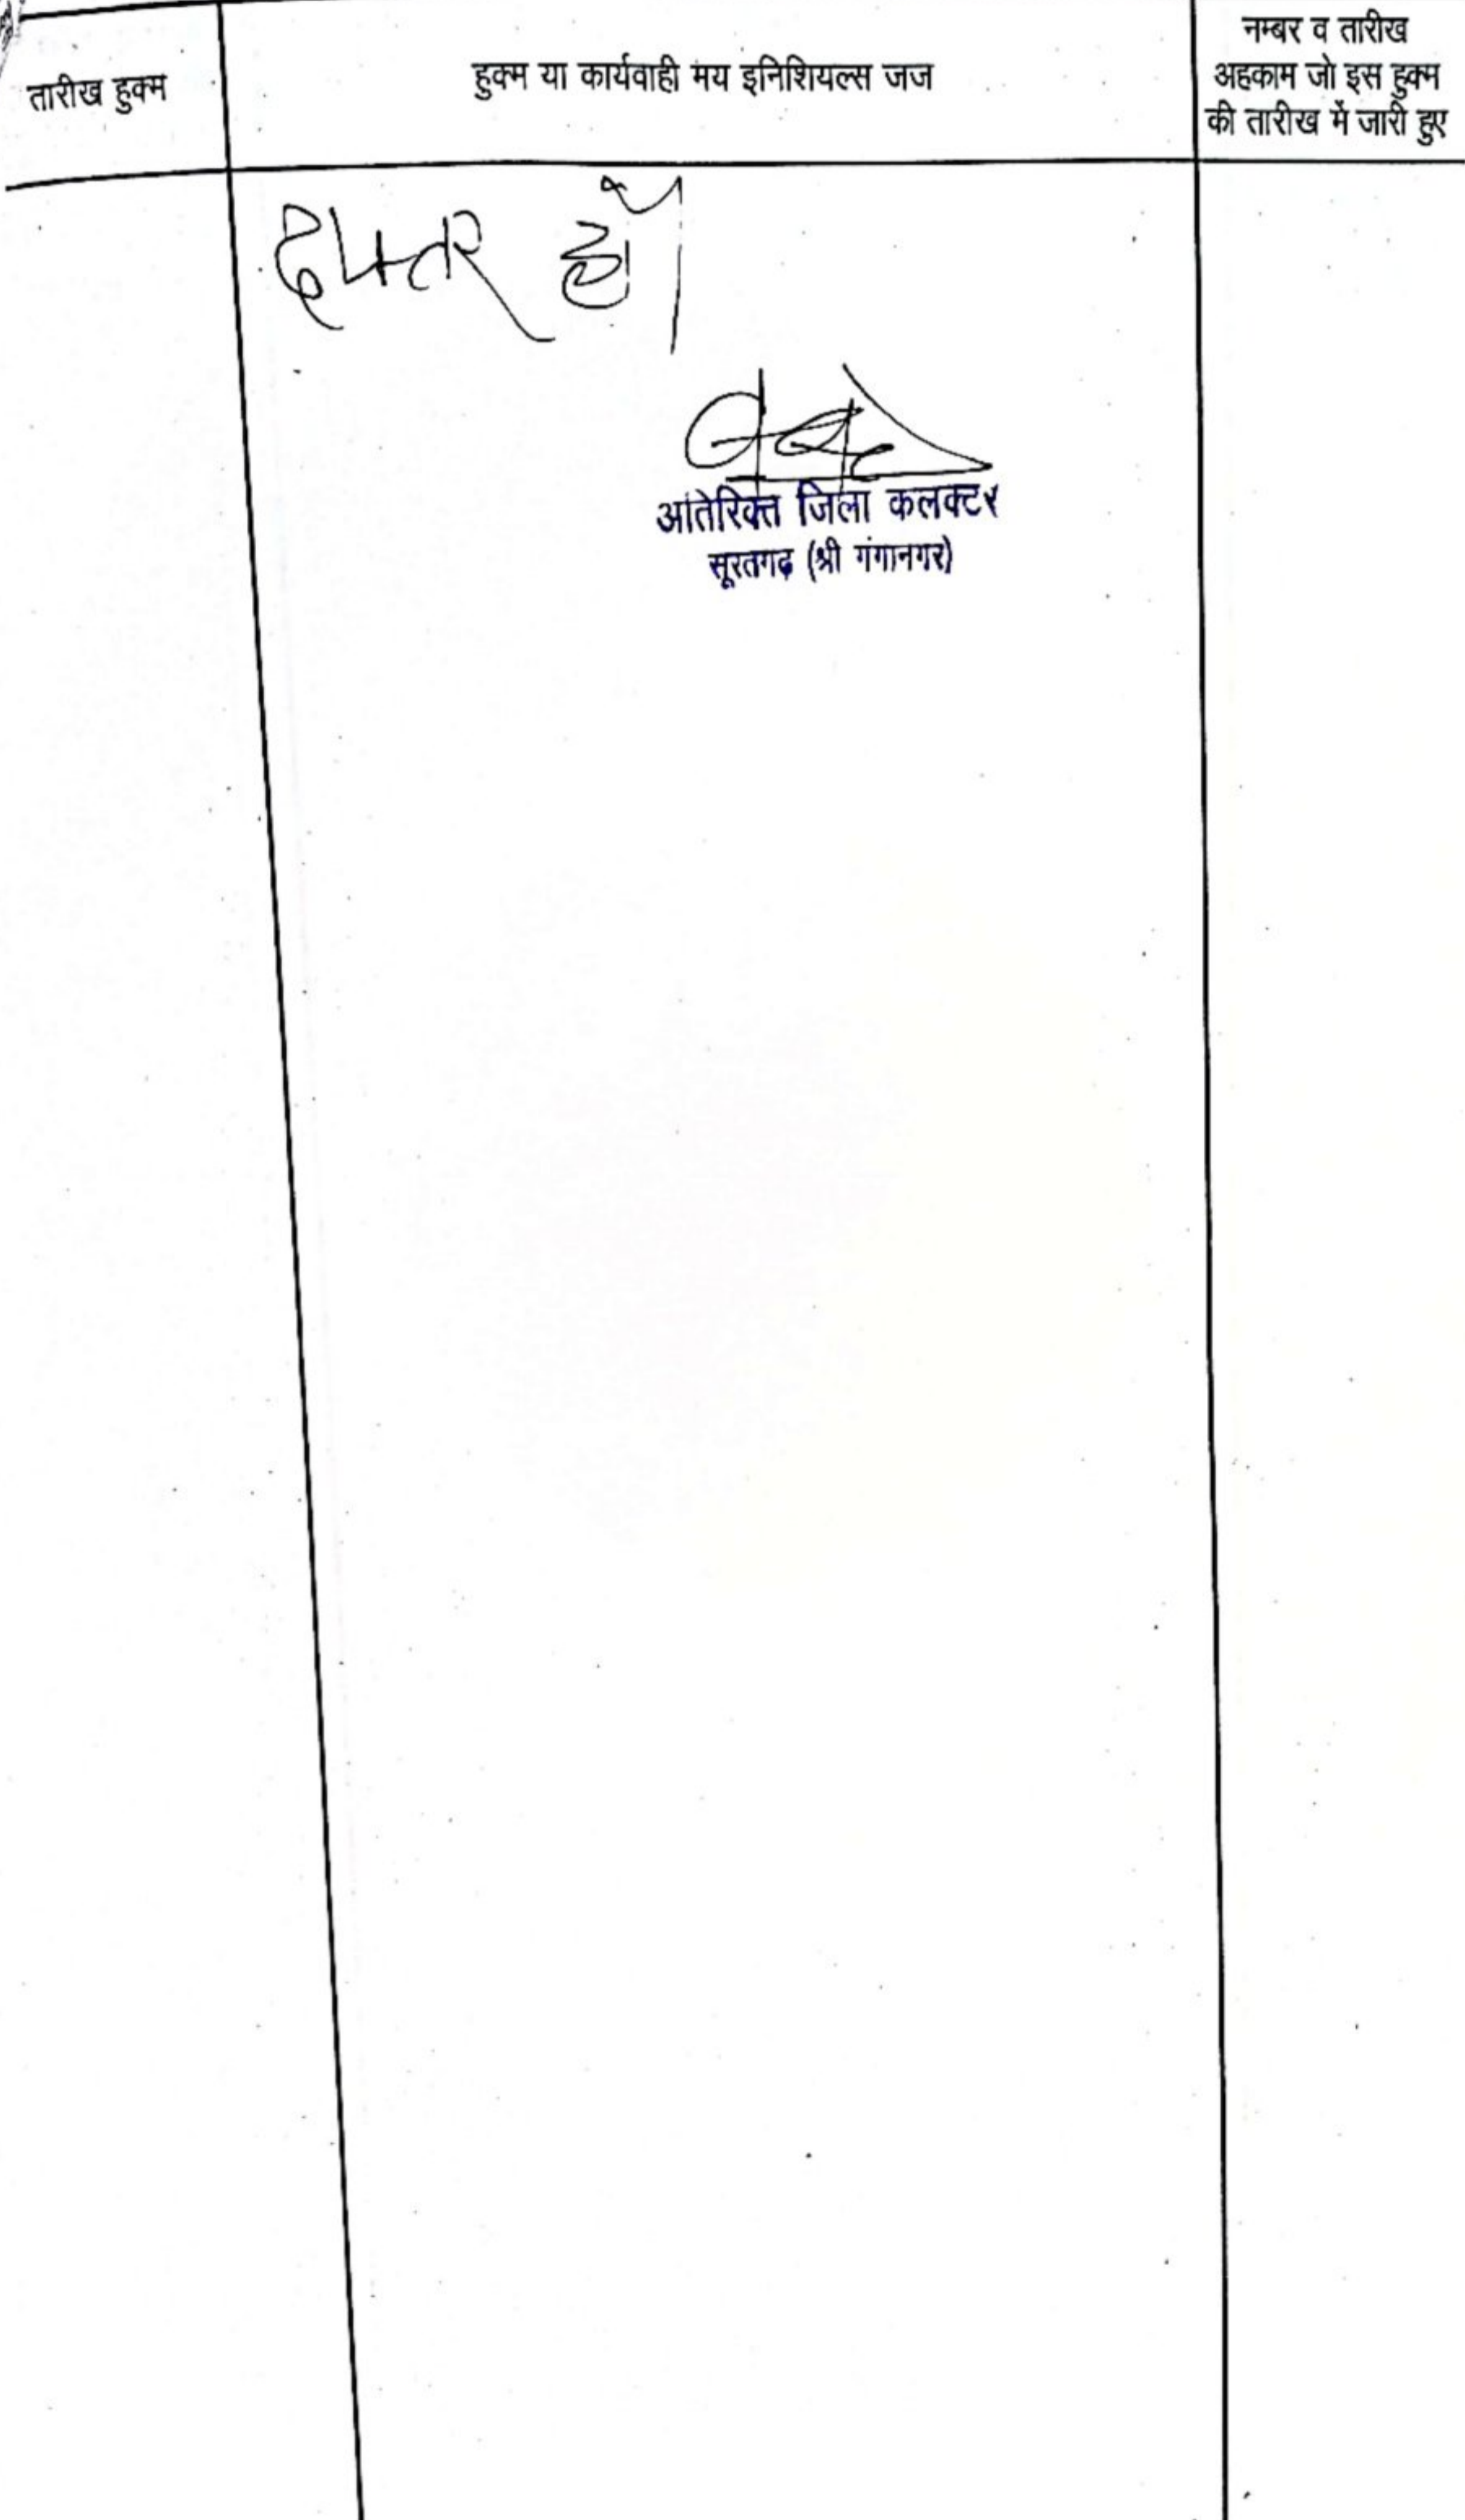 तारीख हुक्म
हुक्म या कार्यवाही मय इनिशियल्स जज
नम्बर व तारीख
अहकाम जो इस हुक्म
की तारीख में जारी हुए
दफ्तर हो।
अतिरिक्त जिला कलक्टर
सूरतगढ़ (श्री गंगानगर)